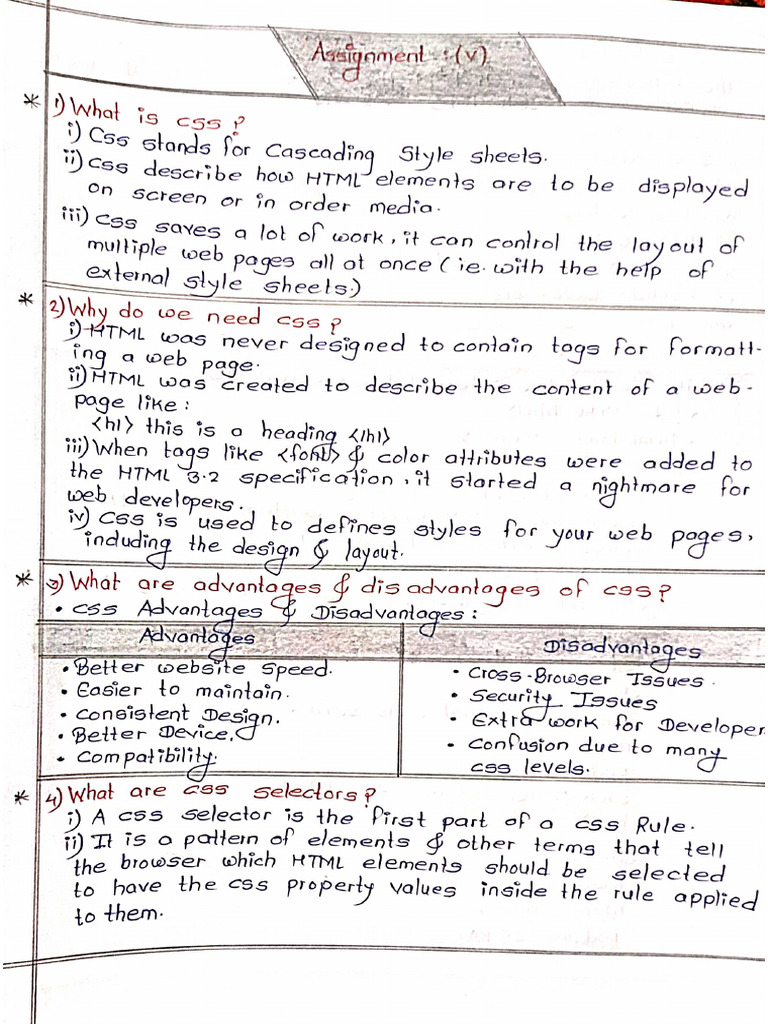 Assignment :- (v)
* 1) What is css ?
i) Css stands for Cascading Style sheets.
ii) css describe how HTML elements are to be displayed
on screen or in order media.
iii) css saves a lot of work, it can control the layout of
multiple web pages all at once ( ie. with the help of
external style sheets.)
* 2) Why do we need css ?
i) HTML was never designed to contain tags for formatt-
ing a web page.
ii) HTML was created to describe the content of a web-
page like :
<h1> this is a heading </h1>
iii) When tags like <font> & color attributes were added to
the HTML 3.2 specification, it started a nightmare for
web developers.
iv) css is used to defines styles for your web pages,
including the design & layout.
* 3) What are advantages & disadvantages of css ?
• css Advantages & Disadvantages :
Advantages
• Better website speed.
• Easier to maintain.
• consistent Design.
• Better Device.
• compatibility.
Disadvantages
• Cross-Browser Issues.
• Security Issues
• Extra work for Developer
• Confusion due to many
css levels.
* 4) What are css selectors ?
i) A css selector is the first part of a css Rule.
ii) It is a pattern of elements & other terms that tell
the browser which HTML elements should be selected
to have the css property values inside the rule applied
to them.